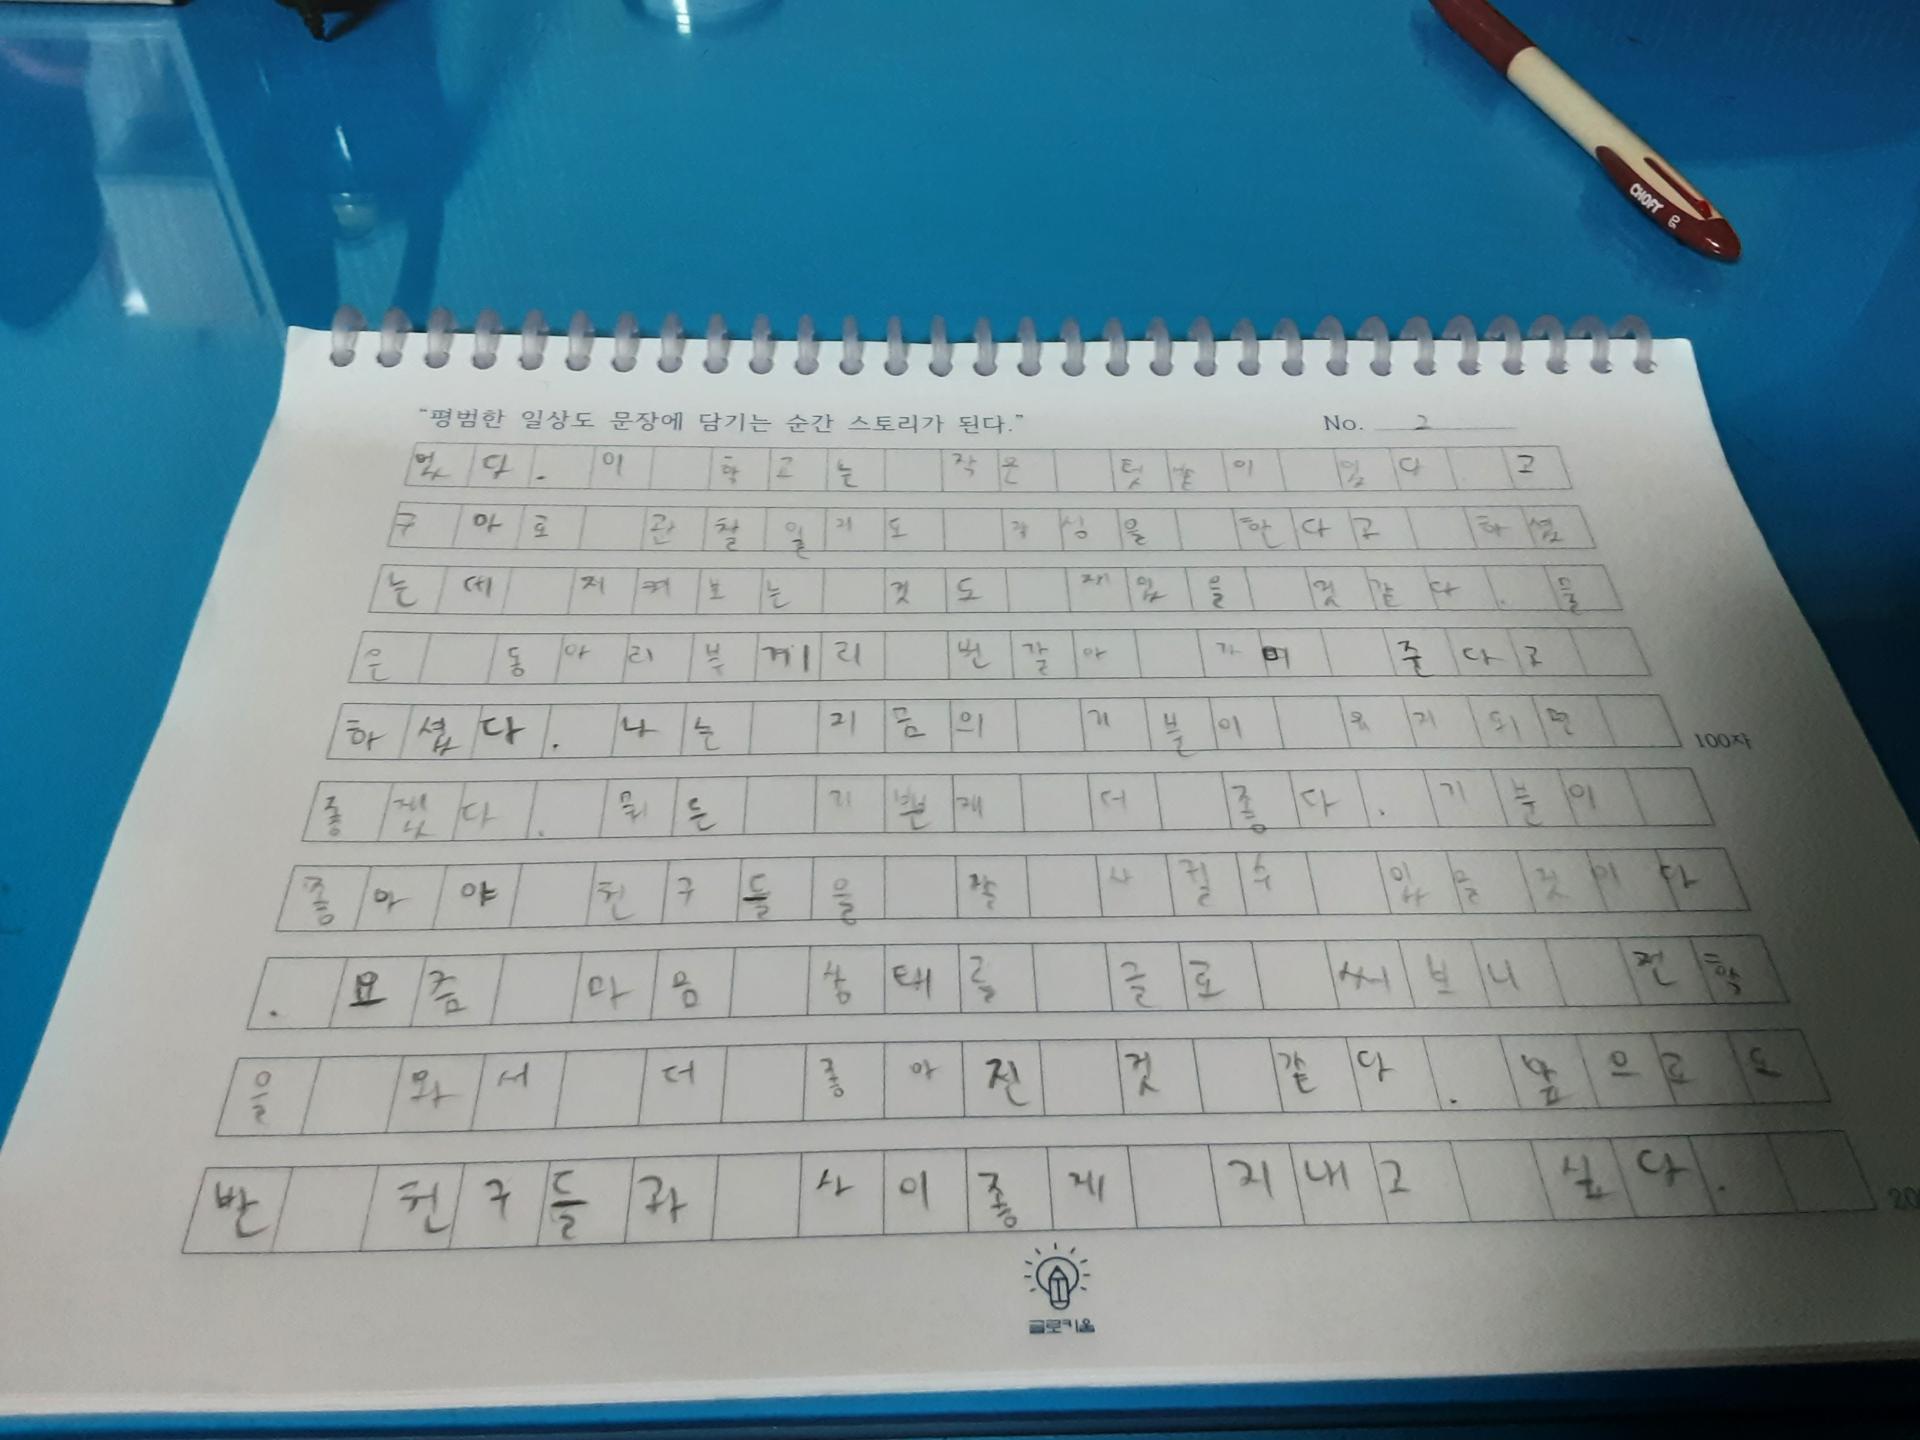 "평범한 일상도 문장에 담기는 순간 스토리가 된다." No. 2
었다. 이 학교는 작은 텃밭이 있다. 고
구마로 관찰일지도 작성을 한다고 하셨
는데 지켜보는 것도 재밌을 것같다. 물
은 동아리부끼리 번갈아 가며 준다고
하셨다. 나는 지금의 기분이 유지되면 100자
좋겠다. 뭐든 기쁜게 더 좋다. 기분이
좋아야 친구들을 잘 사귈수 있을 것이다
. 요즘 마음 상태를 글로 써보니 전학
을 와서 더 좋아진 것 같다. 앞으로도
반 친구들과 사이좋게 지내고 싶다.
글로키움
CHOFT